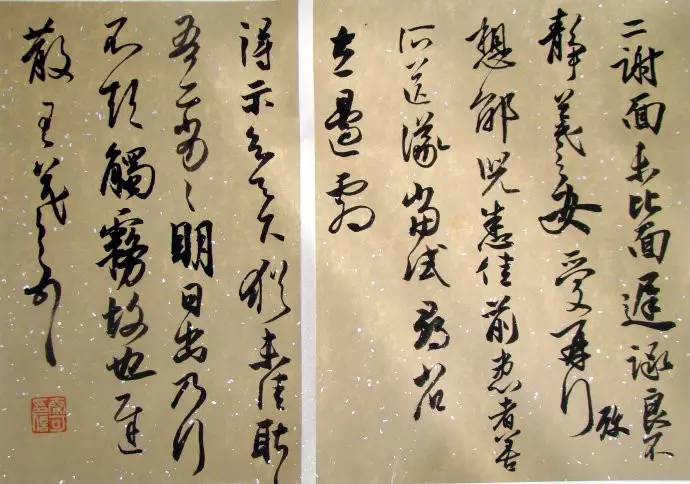 二謝面未比面遲詠良不
靜羲之女愛再拜
想邰兒悉佳前患者善
所送議當試尋省
左邊劇
得示知足下猶未佳耿〻
吾亦劣〻明日出乃行
不欲觸霧故也遲
散王羲之頓首